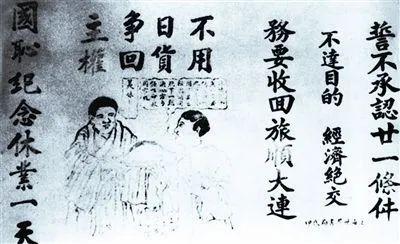 誓不承認廿一條件
不達目的 經濟絕交
務要收回旅順大連
不用
日貨
争回
主權
國恥紀念休業一天